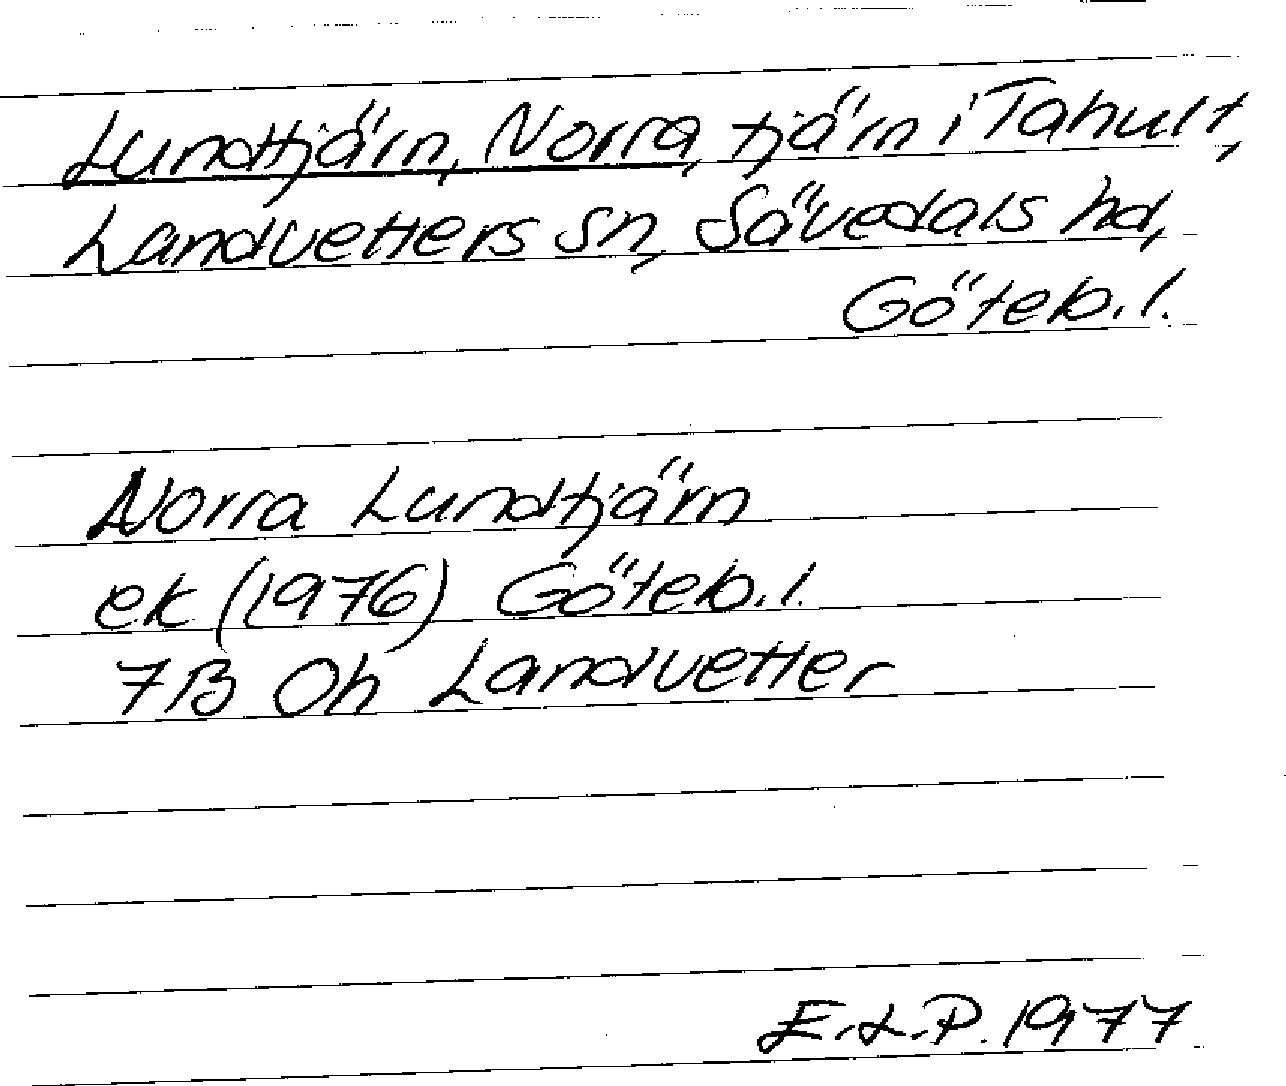 Lundtjärn, Norra, tjärn i Tahult,
Landvetters sn, Sävedals hd,
Göteb. l.
Norra Lundtjärn
ek (1976) Göteb. l.
7B Oh Landvetter
E.L.P. 1977